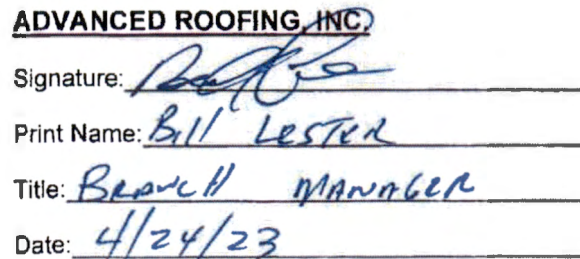 ADVANCED ROOFING, INC.
Signature:
Print Name: Bill LESTER
Title: BRANCH MANAGER
Date: 4/24/23